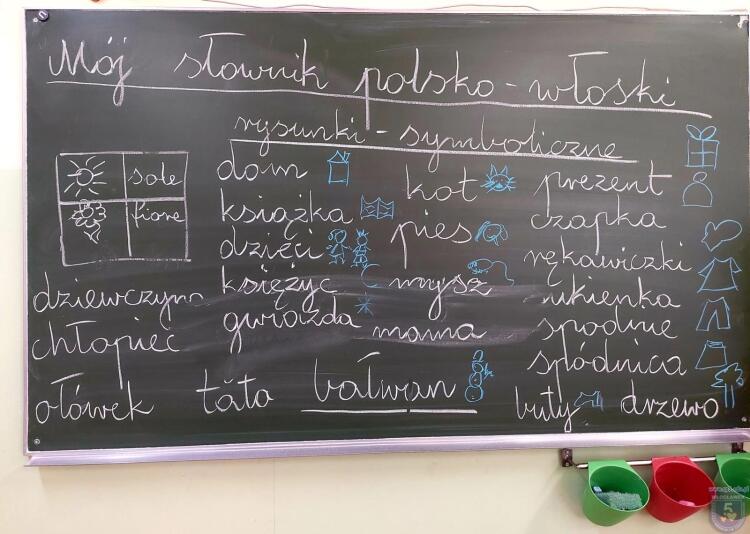 Mój słownik polsko-włoski
rysunki-symboliczne
sole
fiore
dom
książka
dzięci
księżyc
gwiazda
kot
pies
mysz
mama
prezent
czapka
rękawiczki
sukienka
spodnie
spódnica
dziewczyna
chłopiec
ołówek
tata
bałwan
buty
drzewo
WŁOCŁAWEK
5